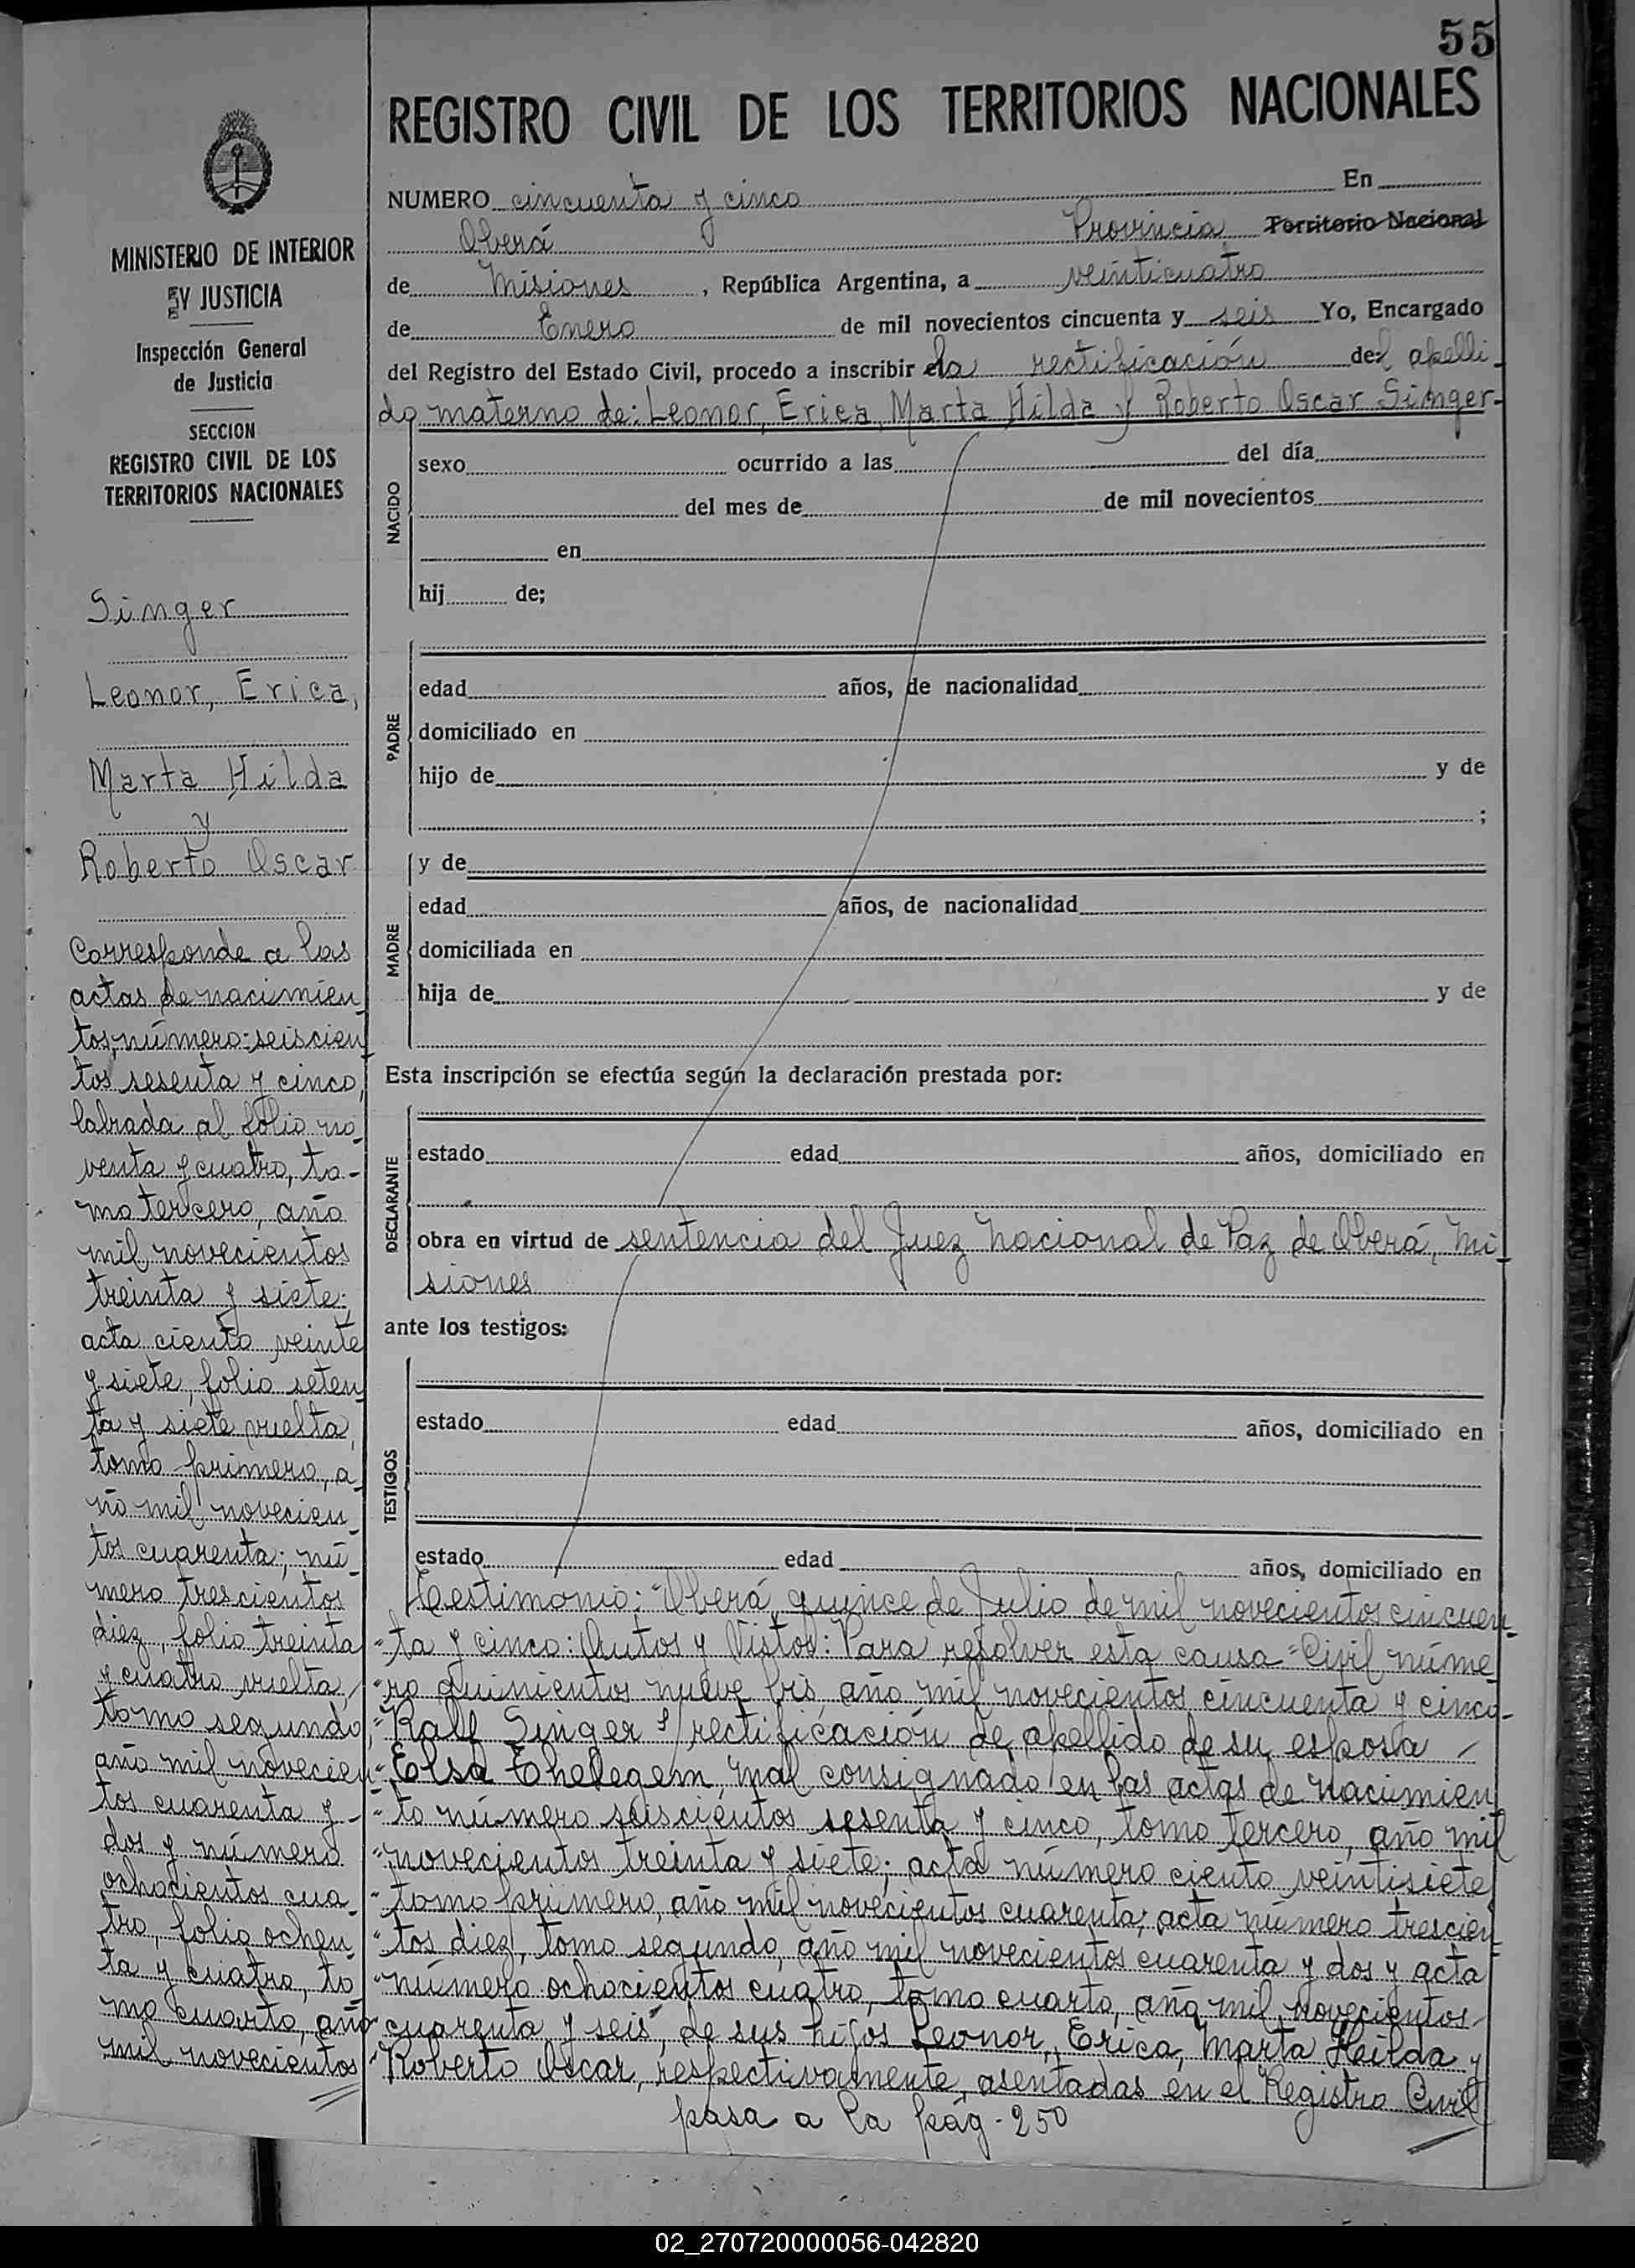 55
REGISTRO CIVIL DE LOS TERRITORIOS NACIONALES
NUMERO cincuenta y cinco En
Oberá Provincia Territorio Nacional
de Misiones, República Argentina, a veinticuatro
de Enero de mil novecientos cincuenta y seis Yo, Encargado
del Registro del Estado Civil, procedo a inscribir la rectificación del apelli-
do materno de: Leonor, Erica, Marta Hilda y Roberto Oscar Singer-
NACIDO
sexo ocurrido a las del día
del mes de de mil novecientos
en
hij de;
PADRE
edad años, de nacionalidad
domiciliado en
hijo de y de
;
MADRE
y de
edad años, de nacionalidad
domiciliada en
hija de y de
Esta inscripción se efectúa según la declaración prestada por:
DECLARANTE
estado edad años, domiciliado en
obra en virtud de sentencia del Juez Nacional de Paz de Oberá, Mi-
siones
ante los testigos:
TESTIGOS
estado edad años, domiciliado en
estado edad años, domiciliado en
Testimonio: "Oberá, quince de Julio de mil novecientos cincuen-
"ta y cinco: Autos y Vistos: Para resolver esta causa "Civil núme
"ro quinientos nueve bis, año mil novecientos cincuenta y cinco-
"Ralf Singer s/rectificación de apellido de su esposa /
"Elsa Thelegem, mal consignado en las actas de nacimien
"to número seiscientos sesenta y cinco, tomo tercero, año mil
"novecientos treinta y siete; acta número ciento veintisiete
"tomo primero, año mil novecientos cuarenta; acta número trescien
"tos diez, tomo segundo, año mil novecientos cuarenta y dos y acta
"número ochocientos cuatro, tomo cuarto, año mil novecientos
"cuarenta y seis", de sus hijos Leonor, Erica, Marta Hilda y
"Roberto Oscar, respectivamente, asentadas en el Registro Civil
pasa a la pág- 250
MINISTERIO DE INTERIOR
Y JUSTICIA
Inspección General
de Justicia
SECCION
REGISTRO CIVIL DE LOS
TERRITORIOS NACIONALES
Singer
Leonor, Erica,
Marta Hilda
y
Roberto Oscar
Corresponde a las
actas de nacimien
tos, número: seiscien
tos sesenta y cinco,
labrada al folio no-
venta y cuatro, to-
mo tercero, año
mil novecientos
treinta y siete;
acta ciento veinte
y siete, folio seten
ta y siete vuelta,
tomo primero, a-
ño mil novecien-
tos cuarenta; nú-
mero trescientos
diez, folio treinta
y cuatro vuelta,
tomo segundo,
año mil novecien
tos cuarenta y -
dos y número
ochocientos cua-
tro, folio ochen-
ta y cuatro, to-
mo cuarto, año
mil novecientos
02_270720000056-042820